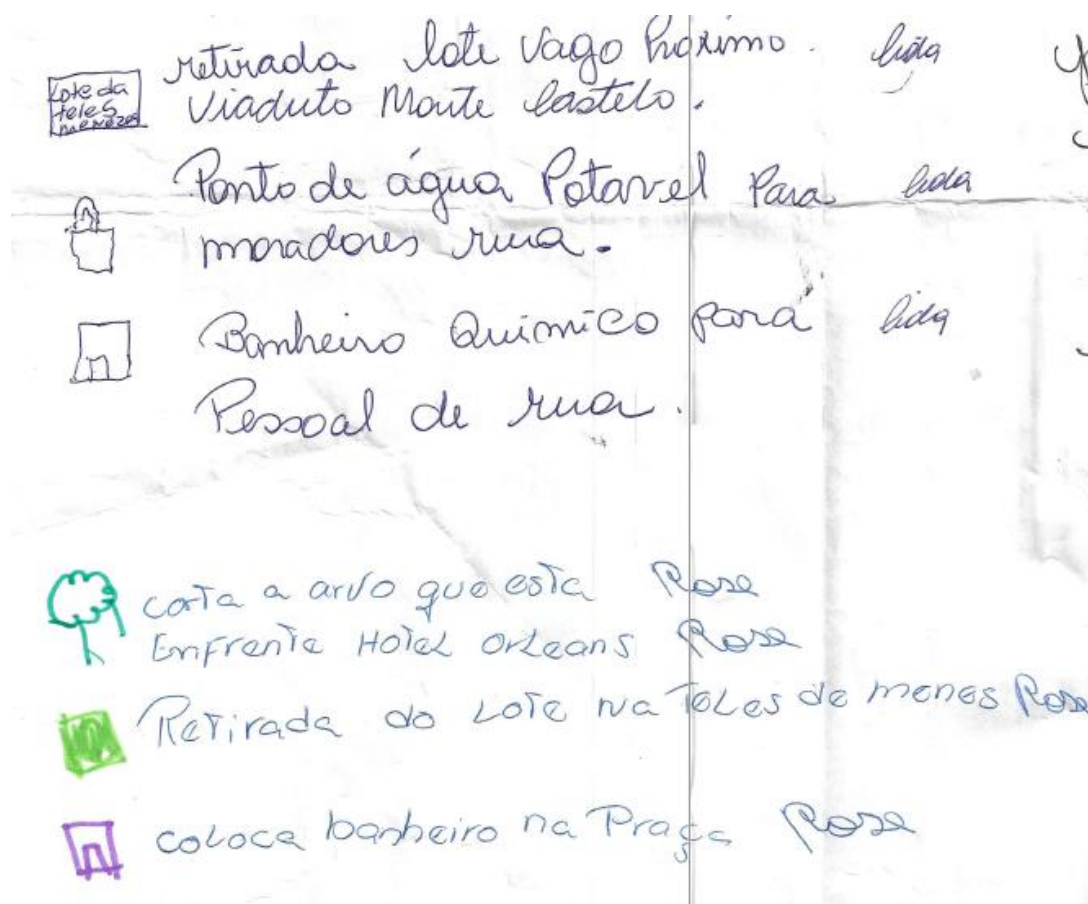 retirada lote vago Próximo. lida
Lote da
teles
menezes
Viaduto Monte Castelo.
Ponto de água Potavel Para lida
moradores rua.
Banheiro Quimico para lida
Pessoal de rua.
corta a arvo que esta Rose
Enfrente Hotel Orleans Rose
Retirada do Lote na Teles de menes Rose
coloca banheiro na Praça Rose